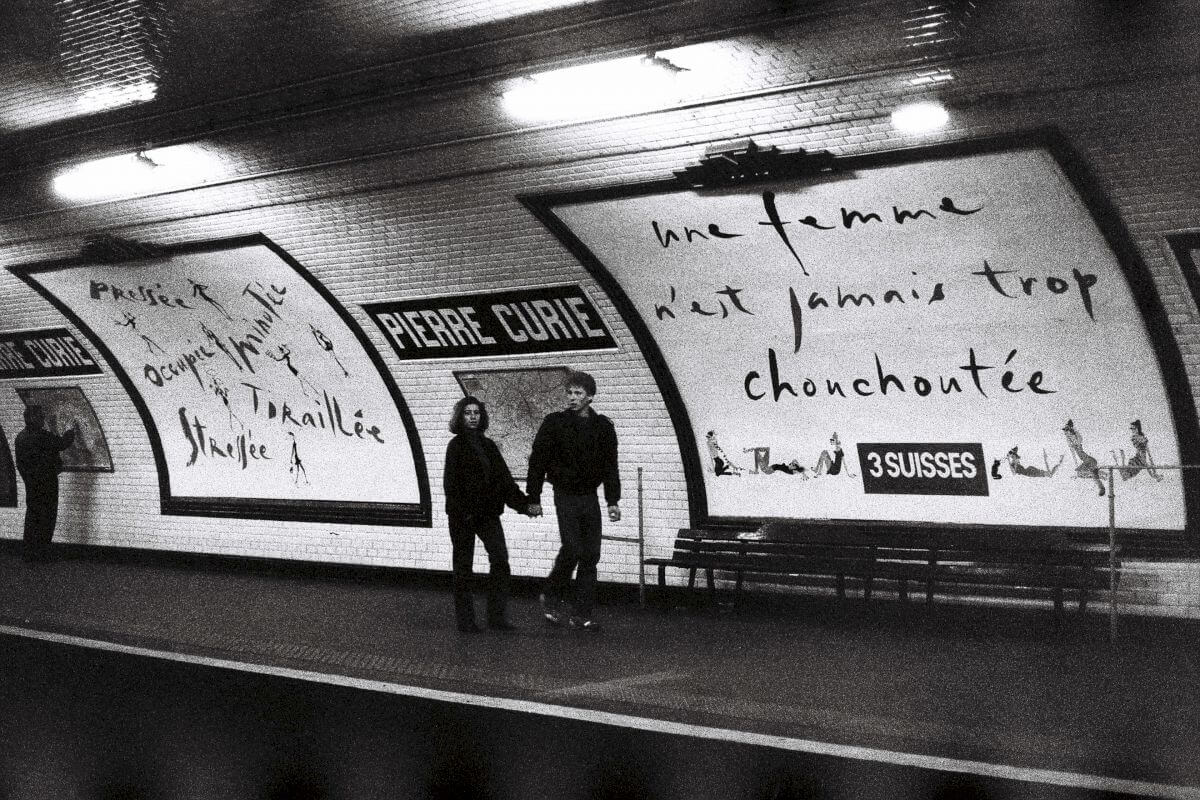 CURIE
PRessée
minutée
Occupée
TiRaillée
Stressée
PIERRE CURIE
une femme
n'est jamais trop
chouchoutée
3 SUISSES